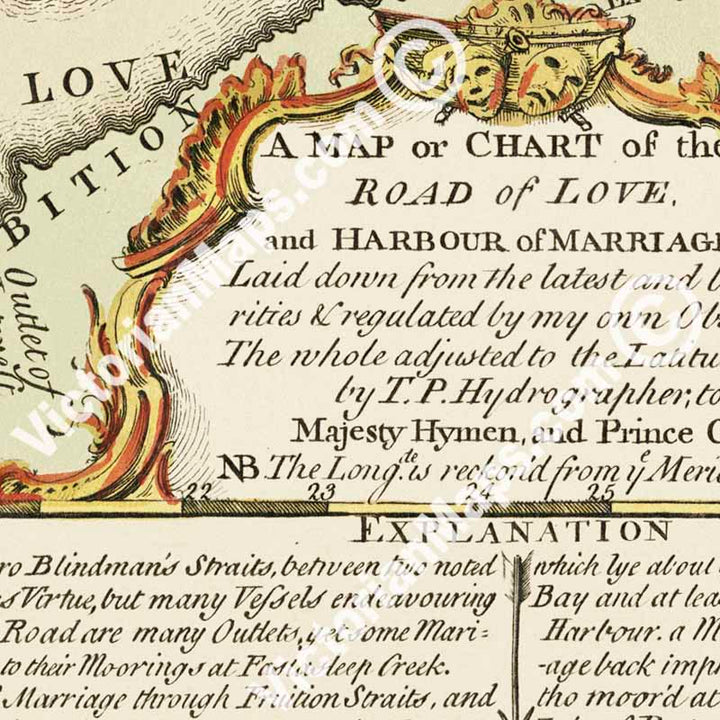 LOVE
BITION
Outlet of
A MAP or CHART of the
ROAD of LOVE,
and HARBOUR of MARRIAGE
Laid down from the latest and b
rities & regulated by my own Ob
The whole adjusted to the Latitu
by T. P. Hydrographer, to
Majesty Hymen, and Prince C
NB The Long.te is reckond from ye Meri
22 23 24 25
EXPLANATION
ro Blindman's Straits, between two noted
s Virtue, but many Vessels endeavouring
Road are many Outlets, yet some Mari=
to their Moorings at Fastasleep Creek.
Marriage through Fruition Straits, and
which lye about
Bay and at lea
Harbour. a M
-age back imp
tho moor'd at
© VictorianMaps.com
VictorianMaps.com ©